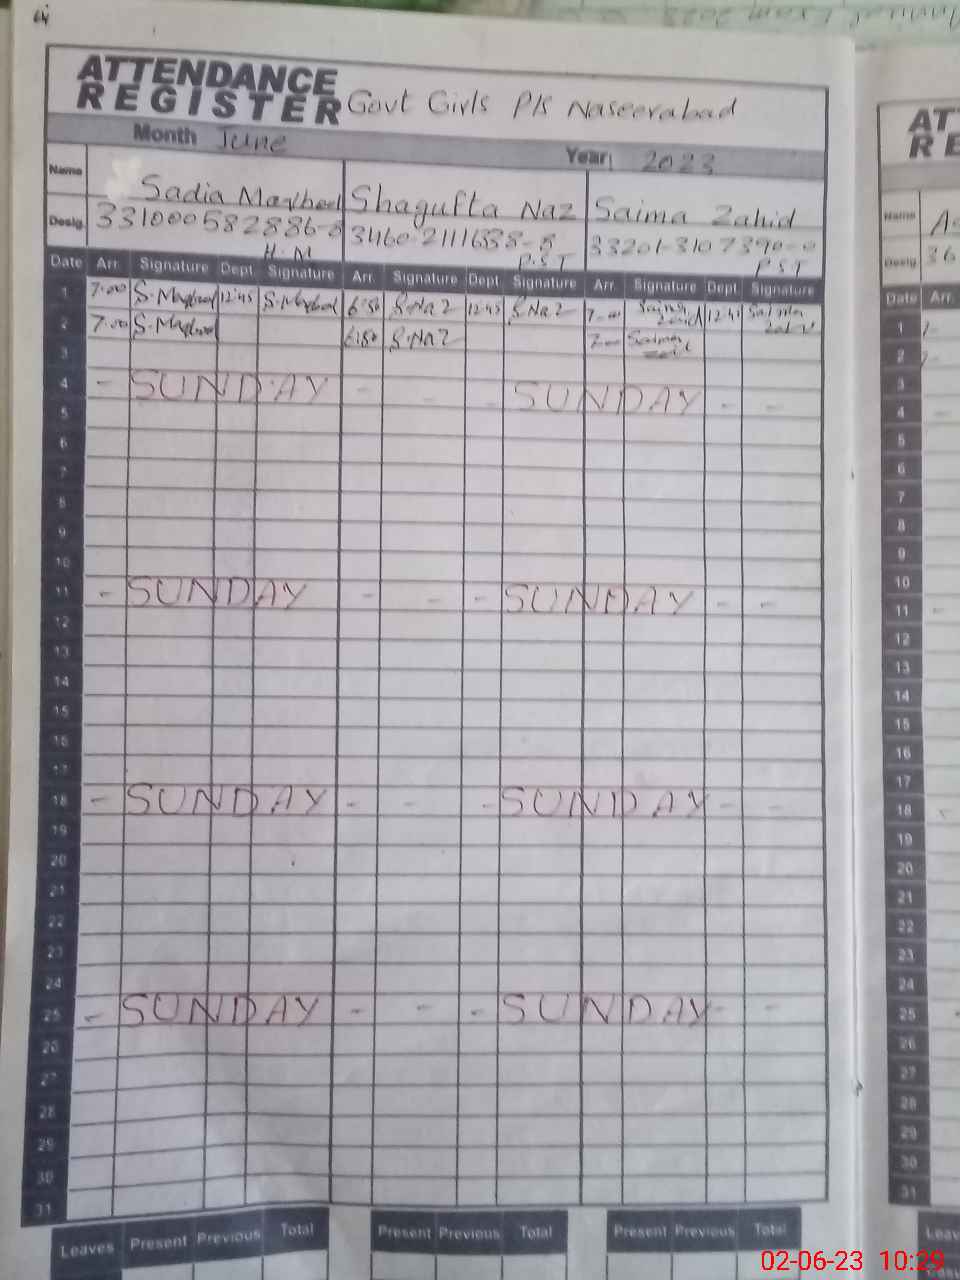 Annual Exam 2023
ATTENDANCE
REGISTER Govt Girls P/s Naseerabad
Month June Year 2023
Name Sadia Maqbool Shagufta Naz Saima Zahid
Desig.
H.M P.S.T P.S.T
Date Arr. Signature Dept. Signature Arr. Signature Dept. Signature Arr. Signature Dept. Signature
1 7:00 S.Maqbool 12:45 S.Maqbool 6:50 S.Naz 12:45 S.Naz 7:00 Saima Zahid 12:45 Saima Zahid
2 7:00 S.Maqbool 6:50 S.Naz 7:00 Saima Zahid
3
4 - SUNDAY - - - SUNDAY - -
5
6
7
8
9
10
11 - SUNDAY - - - SUNDAY - -
12
13
14
15
16
17
18 - SUNDAY - - - SUNDAY - -
19
20
21
22
23
24
25 - SUNDAY - - - SUNDAY - -
26
27
28
29
30
31
Leaves Present Previous Total Present Previous Total Present Previous Total
AT
RE
Name
Desig. 36
Date Arr.
1
2
3
4 -
5
6
7
8
9
10
11 -
12
13
14
15
16
17
18
19
20
21
22
23
24
25
26
27
28
29
30
31
Leav
02-06-23 10:29